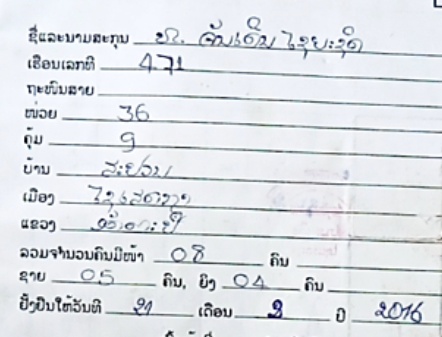 ຊື່ແລະນາມສະກຸນ ທ. ຈັນເດັນ ໄຊຍະຊິດ
ເຮືອນເລກທີ 471
ຖະໜົນສາຍ
ໜ່ວຍ 36
ຄຸ້ມ 9
ບ້ານ
ເມືອງ ໄຊເສດຖາ
ແຂວງ ອັດຕະປື
ລວມຈຳນວນຄົນມີໜ້າ 08 ຄົນ
ຊາຍ 05 ຄົນ, ຍິງ 04 ຄົນ
ຢັ້ງຢືນໃຫ້ວັນທີ 21 ເດືອນ 2 ປີ 2016